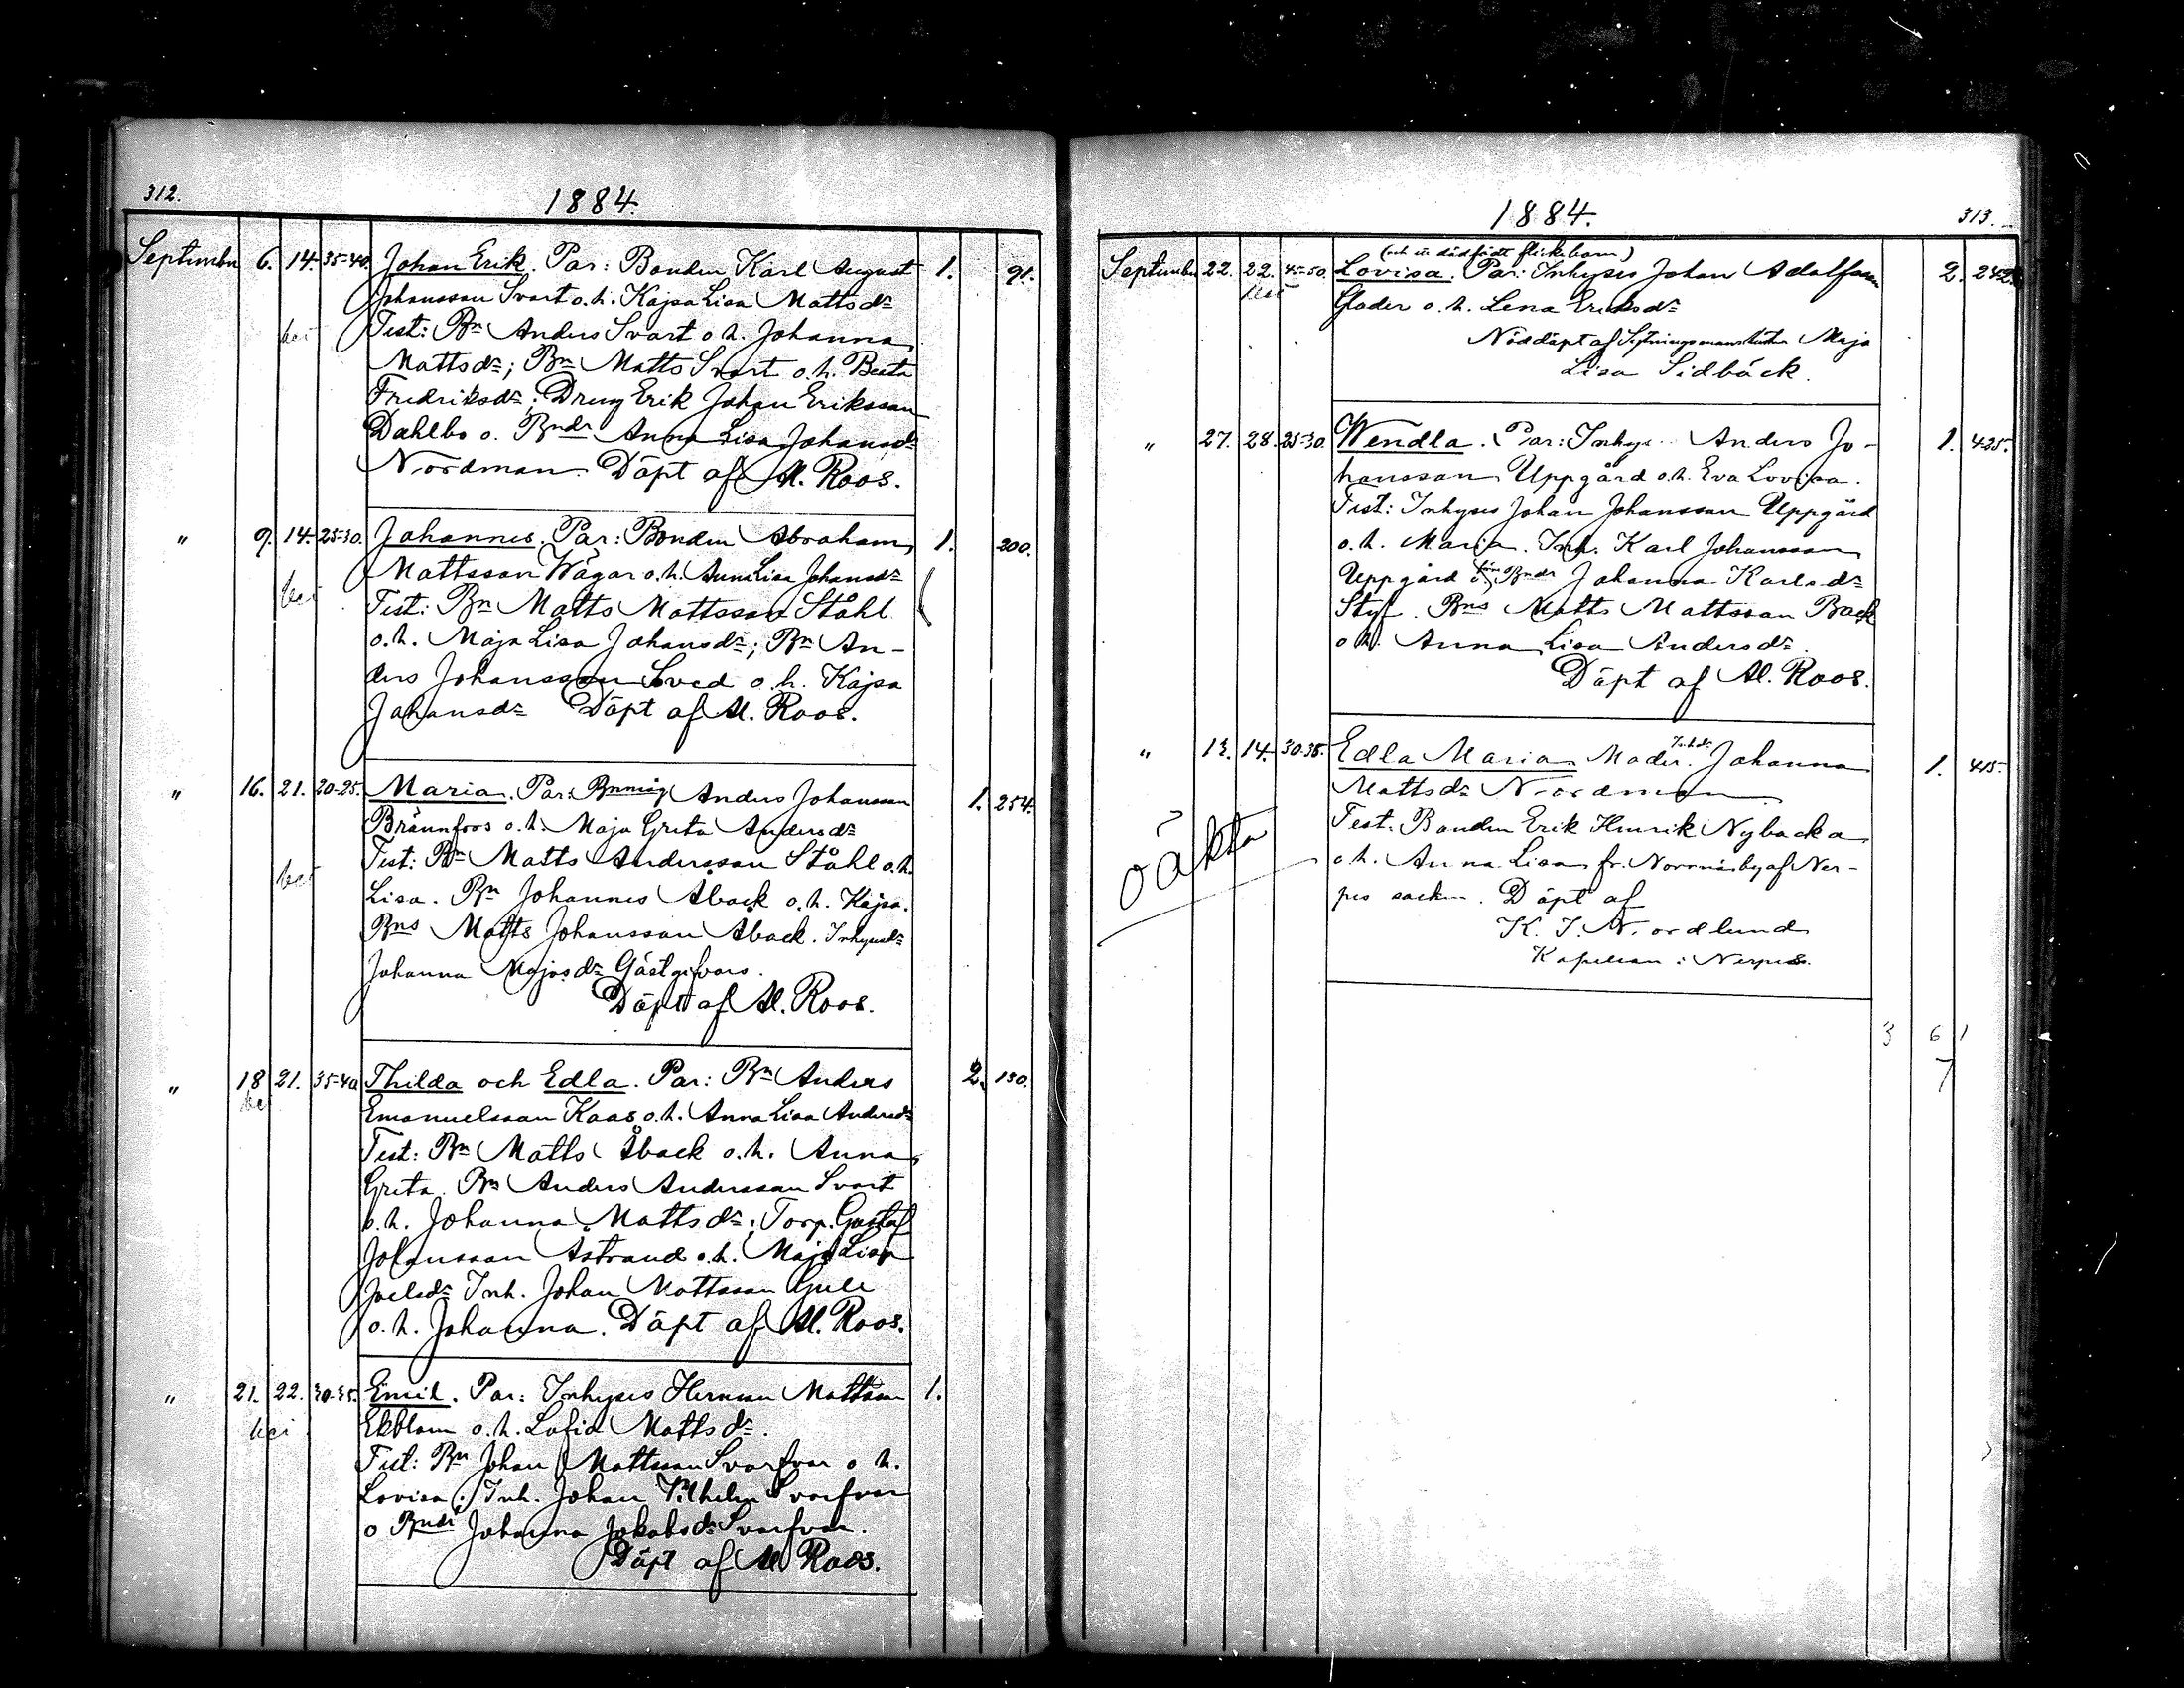 312.
1884.
September 6. 14. 35-40. Johan Erik. Par: Bonden Karl August 1. 91.
Johansson Svart o.h. Kajsa Lisa Mattsdr
Test: Bn Anders Svart o.h. Johanna
Mattsdr; Bn Matts Svart o.h. Beata
Fredriksdr; Dreng Erik Johan Eriksson
Dahlbo o. Bndr Anna Lisa Johansdr
Nordman. Döpt af Al. Roos.
" 9. 14. 25-30. Johannes. Par: Bonden Abraham 1. 200.
Mattsson Wägar o.h. Anna Lisa Johansdr
Test: Bn Matts Mattsson Ståhl
o.h. Maja Lisa Johansdr; Bn An-
ders Johansson Sved o.h. Kajsa
Johansdr Döpt af Al. Roos.
" 16. 21. 20-25. Maria. Par: Bnmåg Anders Johansson 1. 254.
Brännfors o.h. Maja Greta Andersdr
Test: Bn Matts Andersson Ståhl o.h.
Lisa. Bn Johannes Åback o.h. Kajsa.
Bns Matts Johansson Åback. Inhysesdr
Johanna Majasdr Gästgifvars.
Döpt af Al. Roos.
" 18 21. 35-40 Thilda och Edla. Par: Bn Anders 2. 130.
Emanuelsson Kaas o.h. Anna Lisa Andersdr
Test: Bn Matts Åback o.h. Anna
Greta. Bn Anders Andersson Svart
o.h. Johanna Mattsdr; Torp. Gustaf
Johansson Åstrand o.h. Maja Lisa
Joelsdr Inh. Johan Mattsson Gull
o.h. Johanna. Döpt af Al. Roos.
" 21. 22. 30-35. Emil. Par: Inhyses Herman Mattsson 1.
Ekblom o.h. Sofia Mattsdr.
Test: Bn Johan Mattsson Svarfvar o h.
Lovisa; Inh. Johan Vilhelm Svarfvar
o Bndr Johanna Jakobsdr Svarfvar.
Döpt af Al. Roos.
1884.
313.
(och ett dödfödt flickebarn)
September 22. 22. 45-50. Lovisa. Par: Inhyses Johan Adolfsson 2. 242.
Glader o.h. Lena Eriksdr
Nöddöpt af Maja
Lisa Sidbäck.
" 27. 28. 25-30. Wendla. Par: Inhys. Anders Jo- 1. 425.
hansson Uppgård o.h. Eva Lovisa.
Test: Inhyses Johan Johansson Uppgård
o.h. Maria. Inh. Karl Johansson
Uppgård o. Bndr Johanna Karlsdr
Styf. Bns Matts Mattsson Back
o h. Anna Lisa Andersdr.
Döpt af Al. Roos.
" 13. 14. 30-35. Edla Maria Moder: Inh.dr Johanna 1. 415.
Mattsdr Nordman
Test: Bonden Erik Henrik Nybacka
o.h. Anna Lisa fr. Norrnäs by af Ner-
pes socken. Döpt af
K. J. Nordlund
Kapellan i Nerpes.
oäkta
3 6 1
7